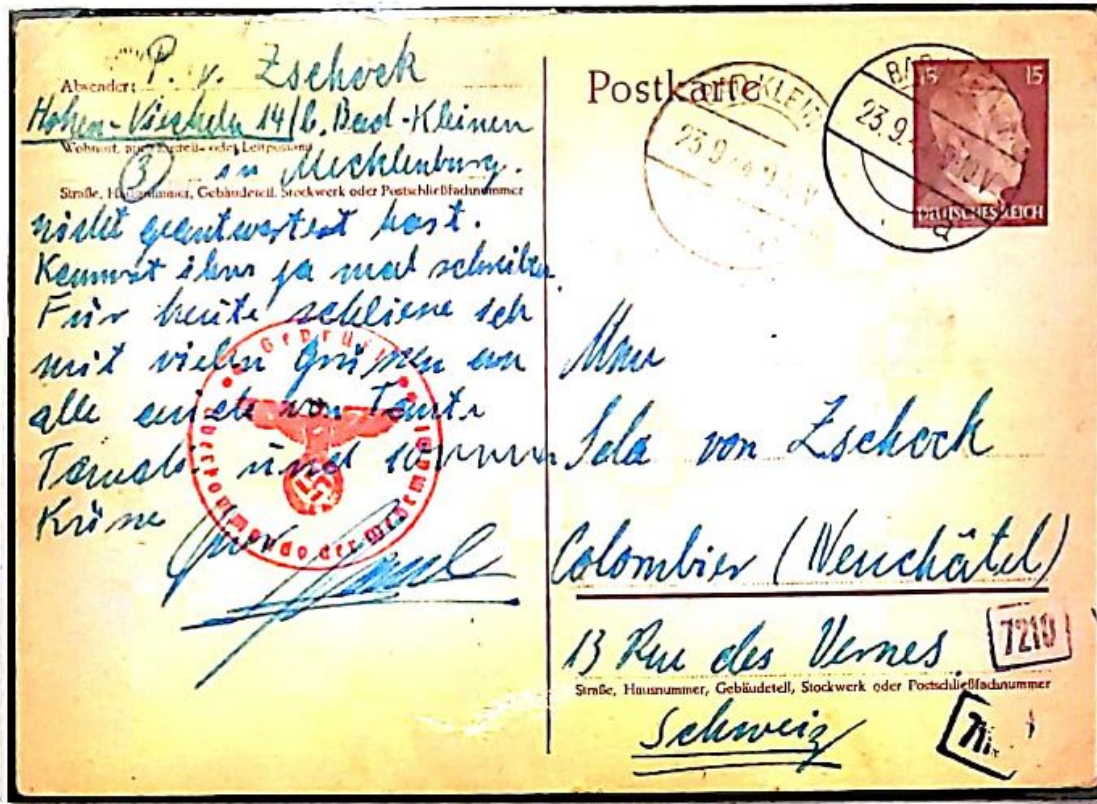 Absender: P. v. Zschock
Hohen-Viecheln 14 / b. Bad-Kleinen
Wohnort, auch Zustell- oder Leitpostamt
(3) in Mecklenburg.
Straße, Hausnummer, Gebäudeteil, Stockwerk oder Postschließfachnummer
nicht geantwortet hast.
ja mal schreiben.
Für heute schliesse ich
mit vielen Grüssen an
alle von Tante
und
Geprüft
Oberkommando der Wehrmacht
Postkarte
BAD KLEINEN
23.9
BAD
23.9
15 15
DEUTSCHES REICH
von Zschock
Colombier (Neuchâtel)
13 Rue des Vernes
7210
Straße, Hausnummer, Gebäudeteil, Stockwerk oder Postschließfachnummer
Schweiz